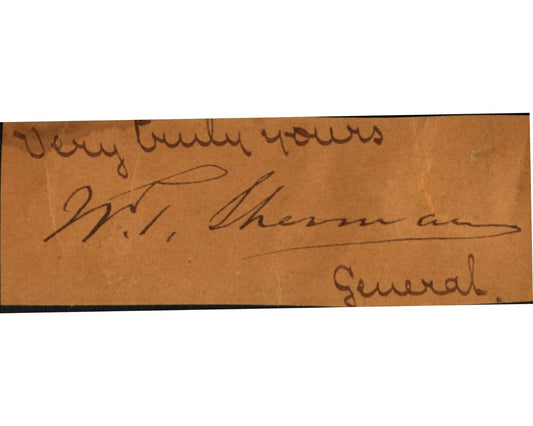 Very truly yours
W. T. Sherman
General.